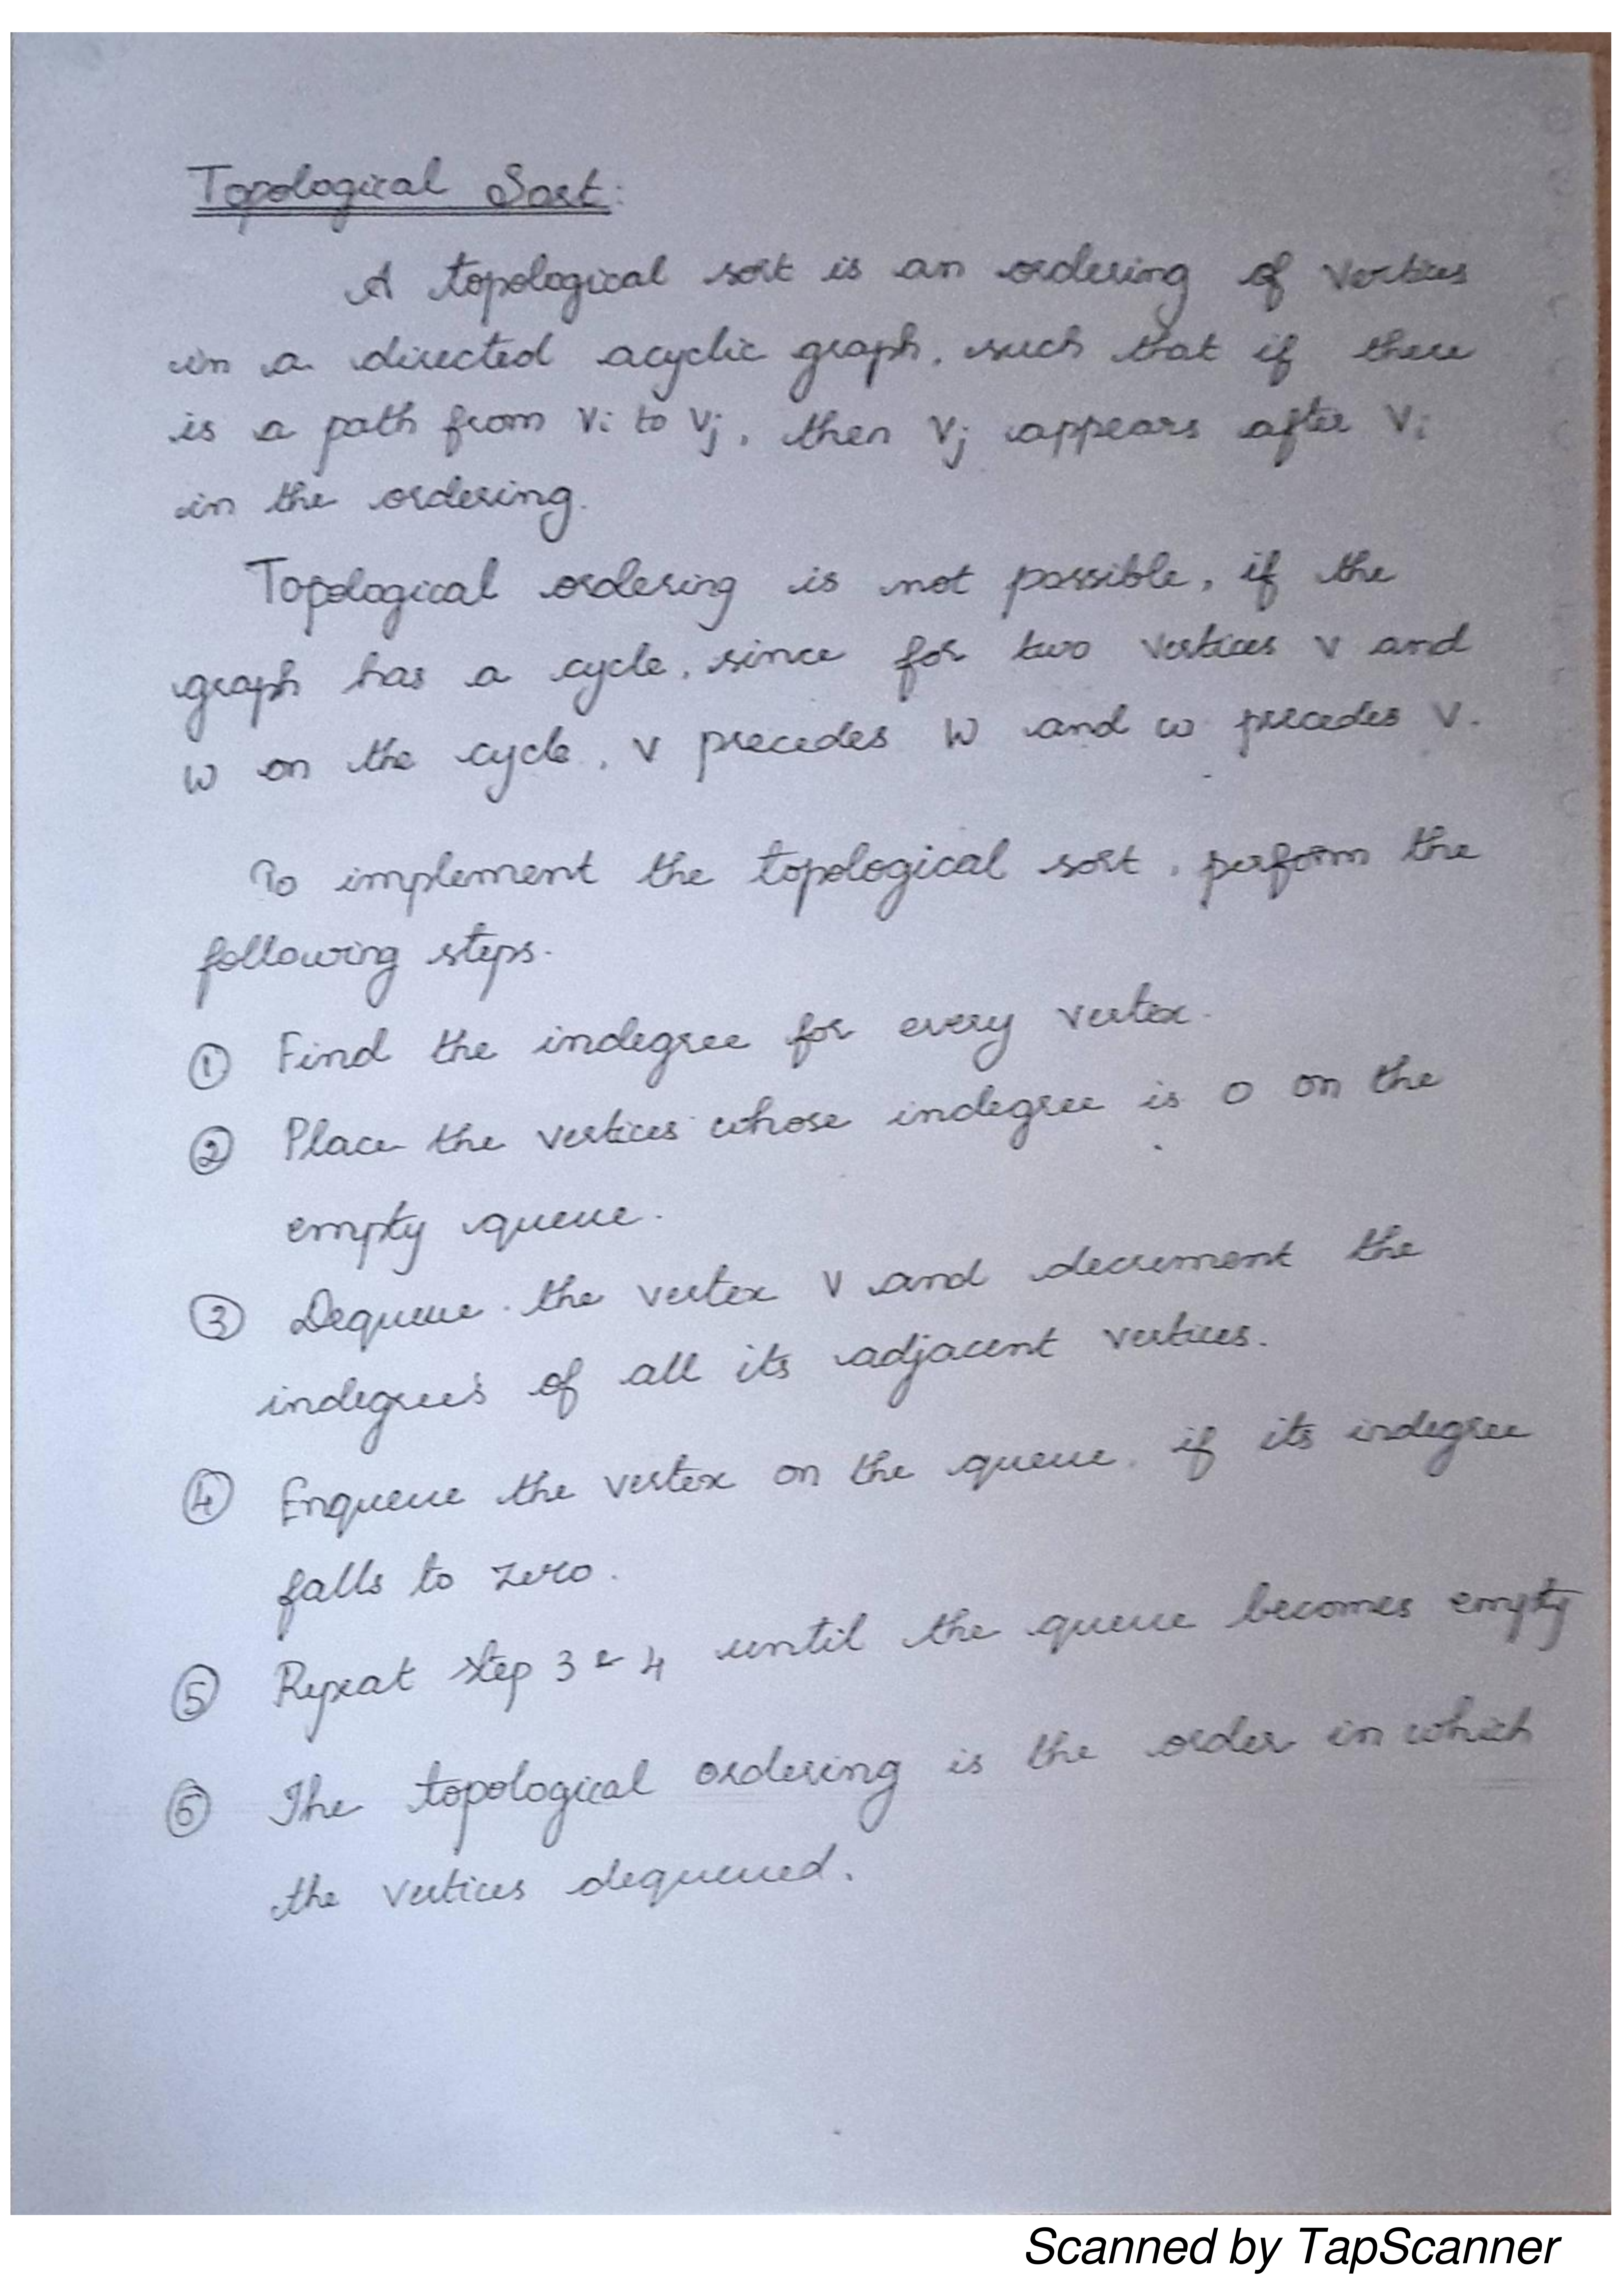 Topological Sort:
A topological sort is an ordering of vertices
in a directed acyclic graph, such that if there
is a path from Vi to Vj, then Vj appears after Vi
in the ordering.
Topological ordering is not possible, if the
graph has a cycle, since for two vertices v and
w on the cycle, v precedes w and w precedes v.
To implement the topological sort, perform the
following steps.
① Find the indegree for every vertex.
② Place the vertices whose indegree is 0 on the
empty queue.
③ Dequeue the vertex V and decrement the
indegree's of all its adjacent vertices.
④ Enqueue the vertex on the queue, if its indegree
falls to zero.
⑤ Repeat step 3 & 4 until the queue becomes empty
⑥ The topological ordering is the order in which
the vertices dequeued.
Scanned by TapScanner